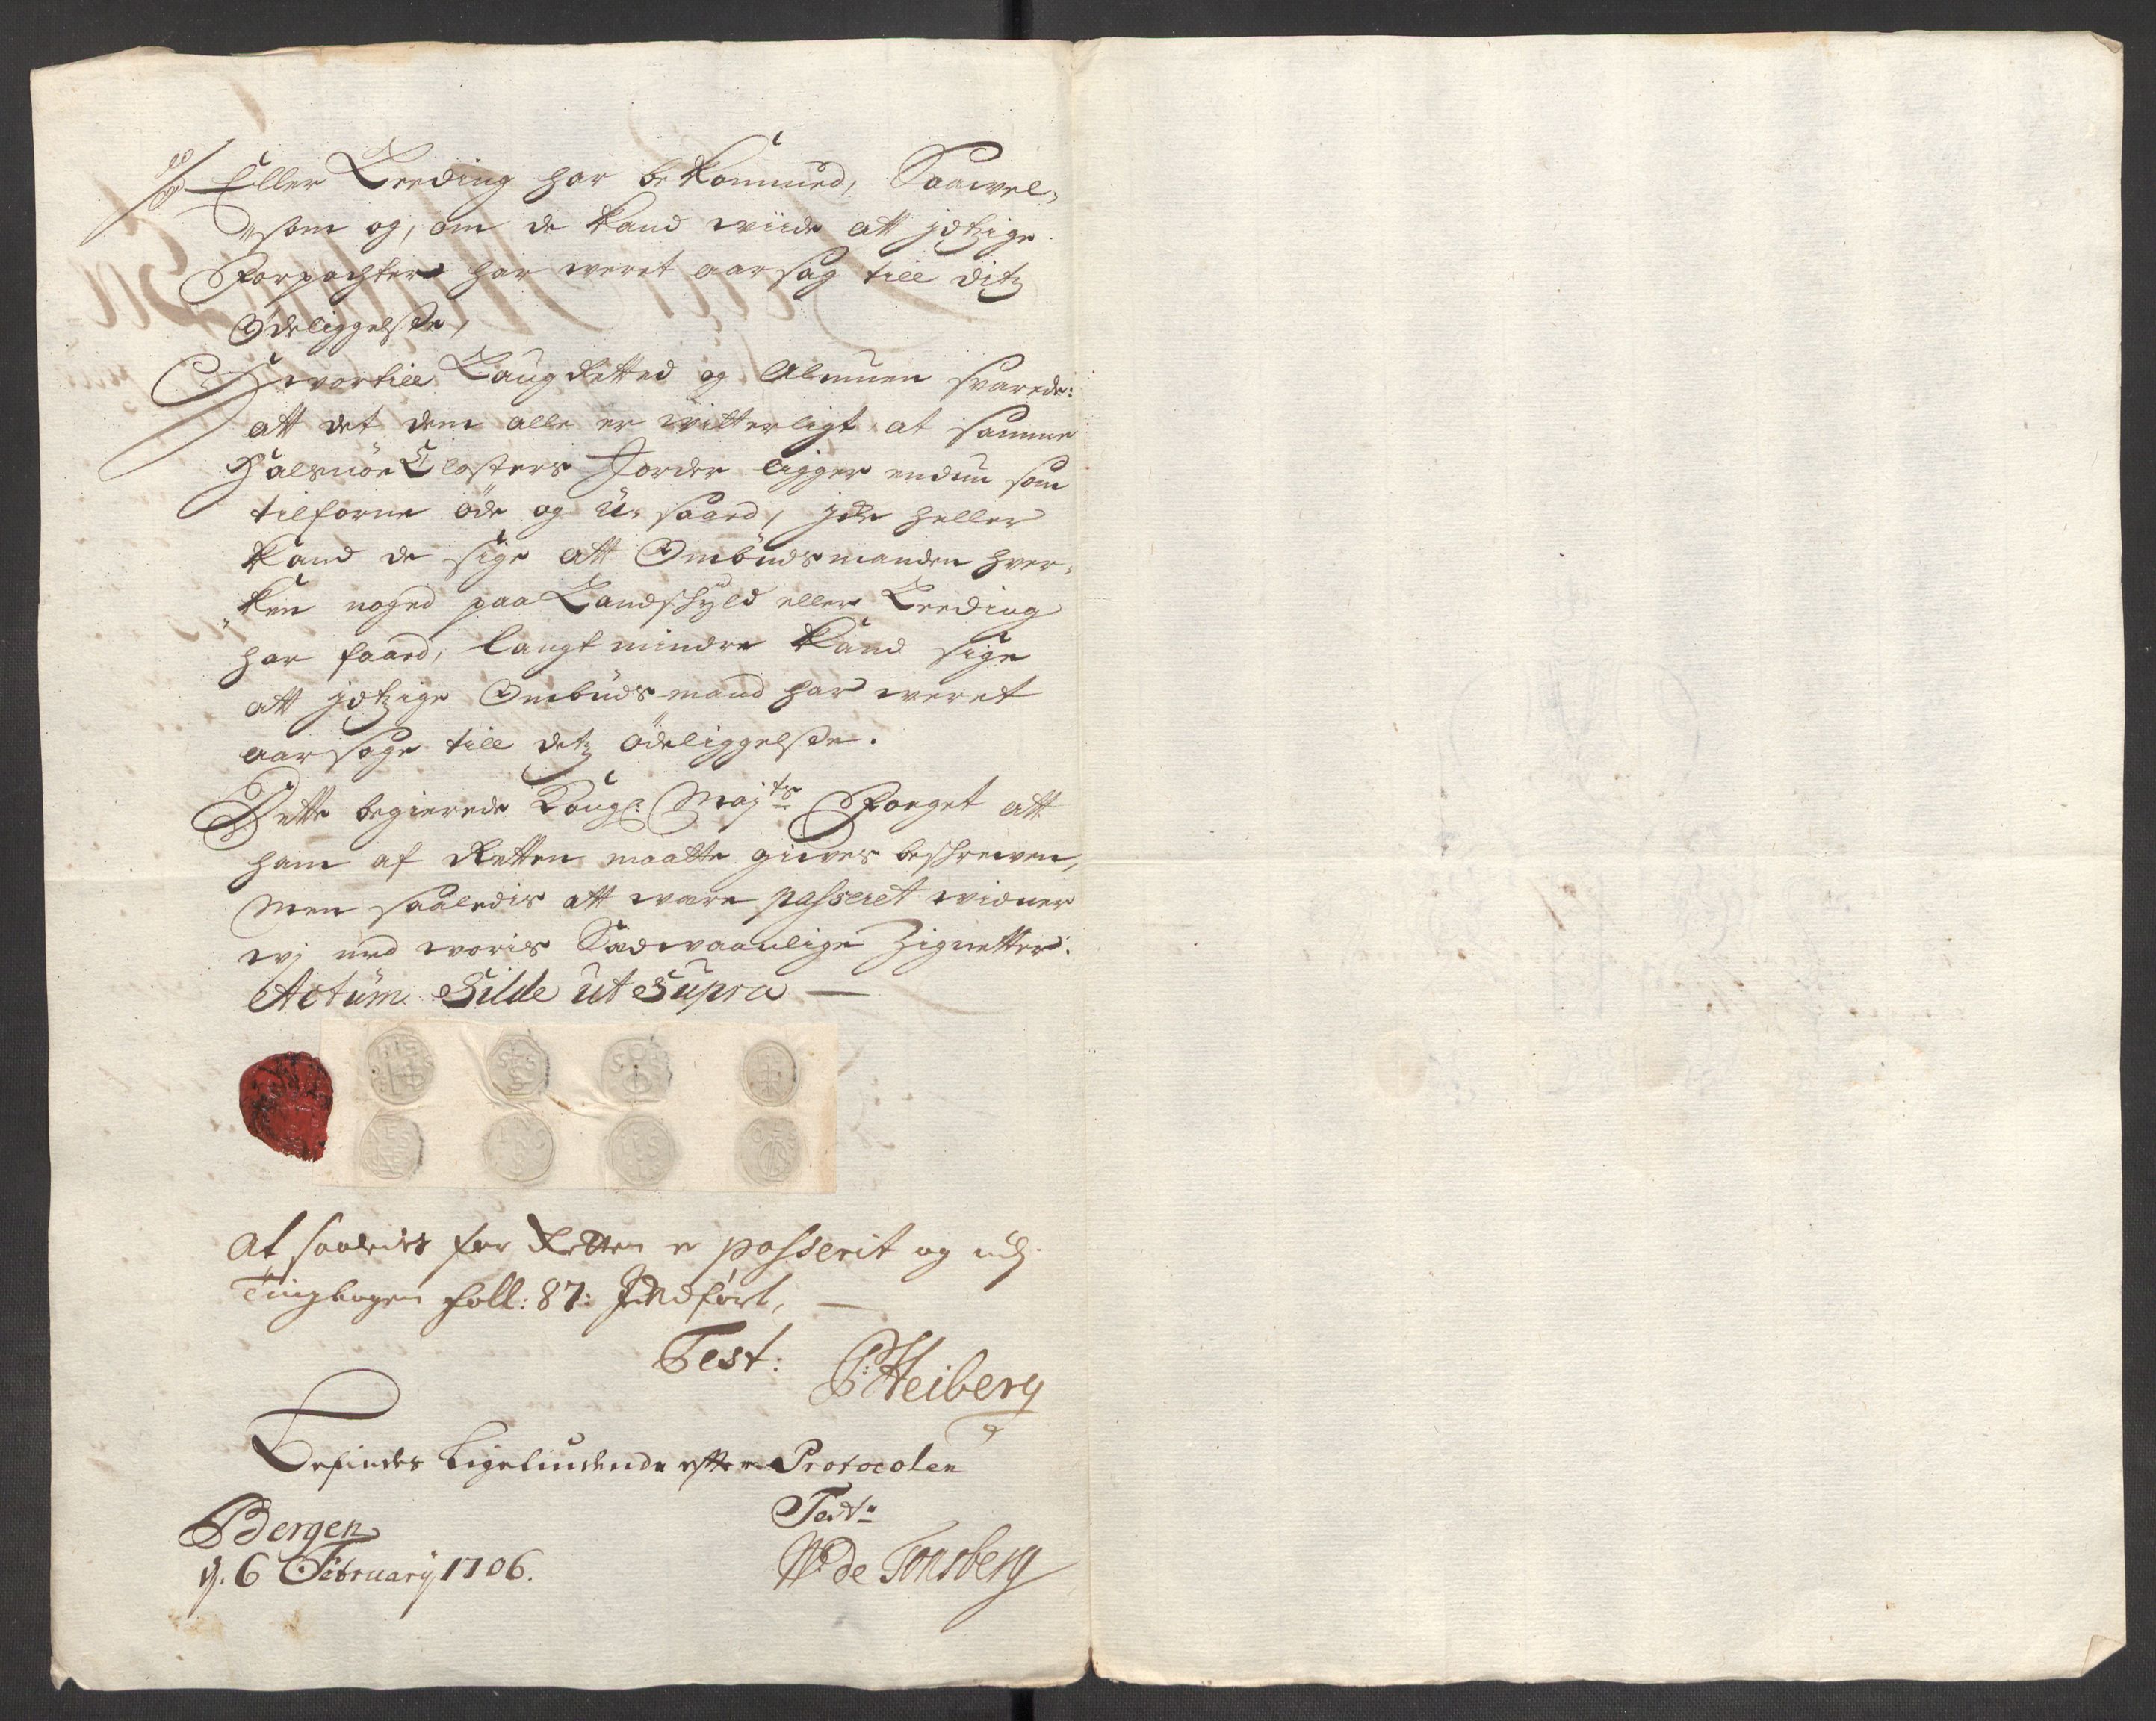 Eller Leeding har bekommed, Saawel,
"som og, om de kand wiide att jdtzige
Forpachter har weret aarsag till ditz
Ödeliggelsse,
Hwortill Laugdretted og Almuen svarede:
att det dem alle er witterligt at samme
Halsnöe Closters Jorder ligger endnu som
tilforne öde og U-saaed, jcke heller
kand de sige att Ombudsmanden hver,
"ken noged paa Landschyld eller Leeding
har faaed, langt mindre kand sige
att jdtzige Ombudsmand har weret
aarsage till detz ödeliggelsse.
Dette begierede Kongl: Maj.ts Foeget att
ham af Retten maatte gives beschreven,
Men saaledis att ware passeret widner
wj med woris Sædwaanlige Zignetter.
Actum Silde ut Supra —
At saaledes for Retten er passerit og udj
Tingbogen foll: 87: Indfört, —
Test:
P: Heiberg
Befindes Ligeliudende efter Protocolen
Bergen
d. 6 February 1706.
Test:
W de Tonsberg